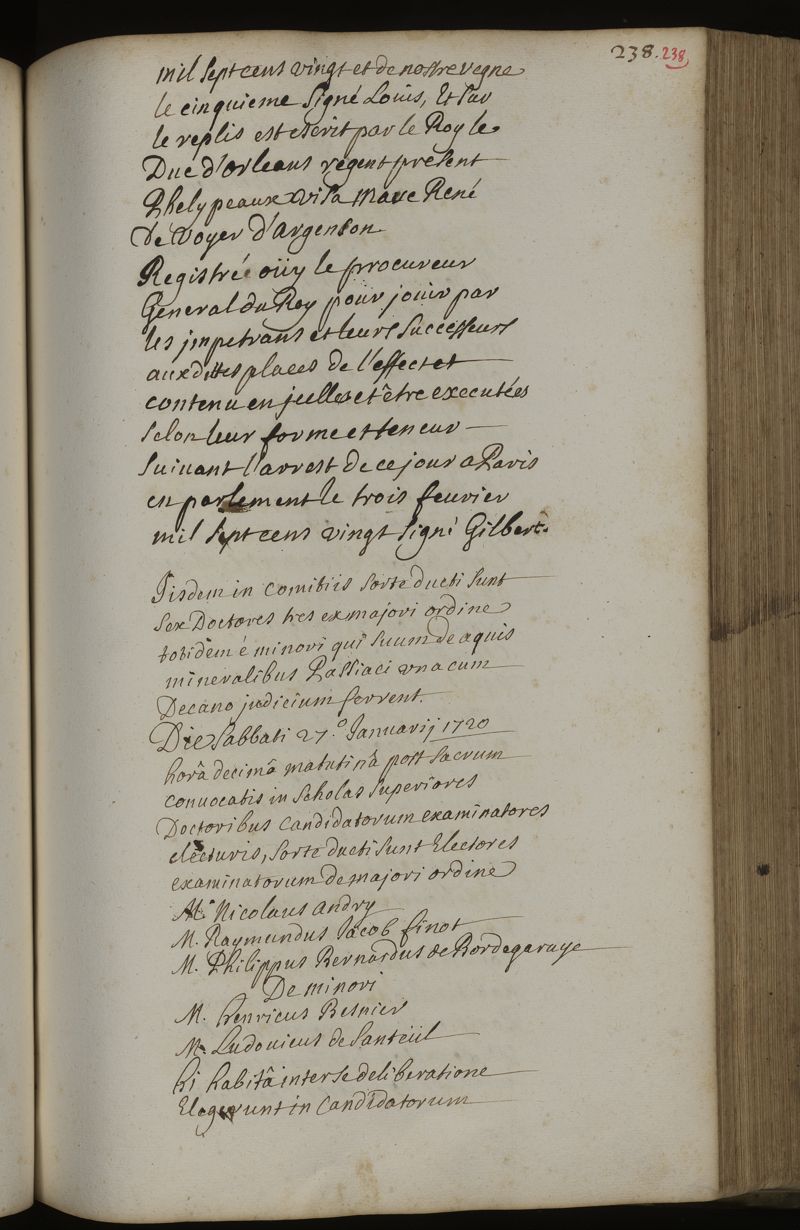 238. 238
mil sept cens vingt et de nostre regne
le cinquieme Signé Louis, Et Sur
le replis est escrit par le Roy le
Duc d'orleans regent present
Phelypeaux Visa Marc René
De Voyer d'Argenson
Registrée oüy le procureur
General du Roy pour jouir par
les jmpetrans et leurs Successeurs
auxdittes places de l'effect et
contenu en jcelles et être executées
selon leur forme et teneur
suiuant l'arrest de ce jour a Paris
en parlement le trois feurier
mil sept cens vingt signé Gilbert.
Jisdem in comitiis sorte ducti sunt
sex Doctores tres ex majori ordine
totidem é minori qui suum de aquis
mineralibus Passiaci una cum
Decano judicium ferrent.
Die Sabbati 27.º Januarij 1720
horâ decimâ matutinâ post sacrum
conuocatis in scholas superiores
Doctoribus candidatorum examinatores
electuris, sorte ducti sunt Electores
examinatorum de majori ordine
M. Nicolaus Andry
M. Raymundus Jacob finot
M. Philippus Bernardus de Bordegaraye
De minori
M. henricus Besnier
M. Ludouicus de Santeüil
hi habitâ inter se deliberatione
Elegerunt in candidatorum